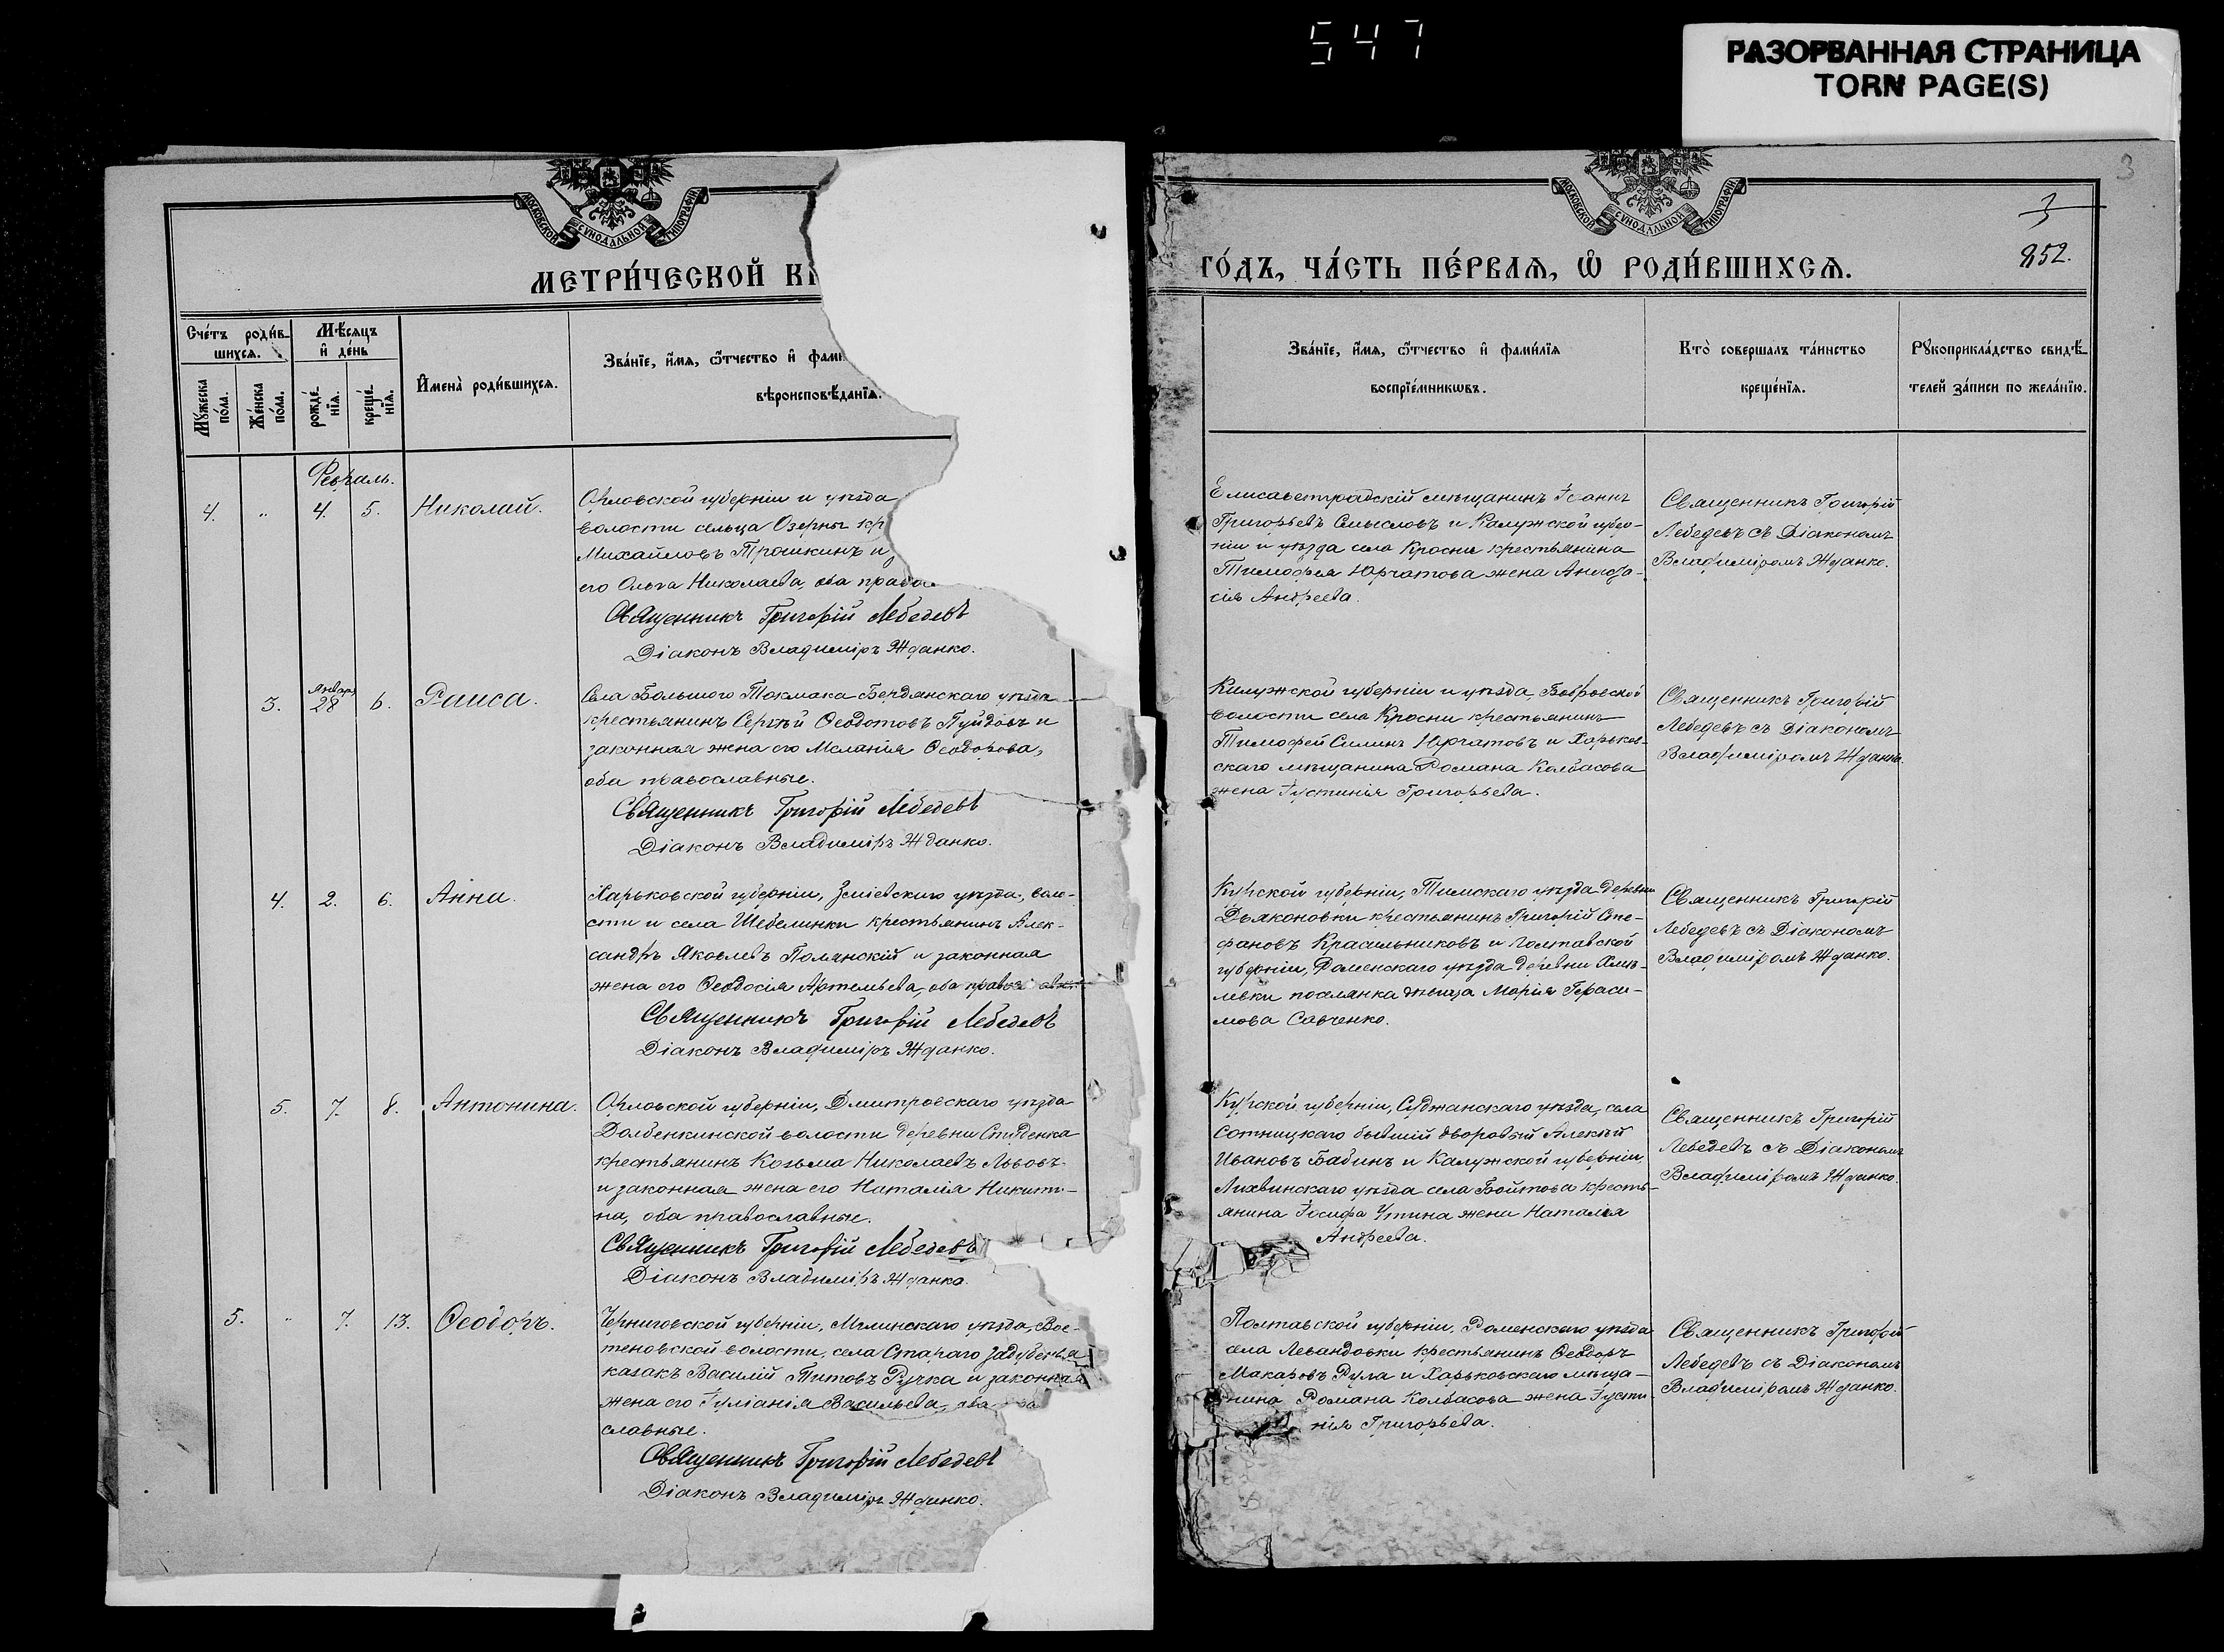 547
РАЗОРВАННАЯ СТРАНИЦА
TORN PAGE(S)
3
МОСКОВСКОЙ СѴНОДАЛЬНОЙ ТИПОГРАФІИ
МЕТРИ́ЧЕСКОЙ К
Сче́тъ роди́в-
шихсѧ.
Мѣ́сѧцъ
и҆ де́нь
Мꙋ́жеска
по́ла.
Же́нска
по́ла.
рожде́-
нїѧ.
креще́-
нїѧ.
И҆мена̀ роди́вшихсѧ.
Зва́нїе, и҆́мѧ, ѻ҆́тчество и҆ фами
вѣроисповѣ́данїѧ.
Февраль.
4. „ 4. 5. Николай.
Орловской губерніи и уѣзда
волости сельца Озерны кр
Михайловъ Трошкинъ и
его Ольга Николаева, оба право
Священникъ Григорій Лебедевъ
Діаконъ Владиміръ Жданко.
3. Январ. 28 6. Раиса.
Села Большого Токмака Бердянскаго уѣзда
крестьянинъ Сергѣй Ѳеодотовъ Гуйдовъ и
законная жена его Меланія Ѳеодорова,
оба православные.
Священникъ Григорій Лебедевъ
Діаконъ Владиміръ Жданко.
4. 2. 6. Анна.
Харьковской губерніи, Зміевскаго уѣзда, воло-
сти и села Шебелинки крестьянинъ Алек-
сандръ Яковлевъ Полянскій и законная
жена его Ѳеодосія Артемьева, оба
Священникъ Григорій Лебедевъ
Діаконъ Владиміръ Жданко.
5. 7. 8. Антонина.
Орловской губерніи, Дмитровскаго уѣзда
Долбенкинской волости деревни Студенка
крестьянинъ Козьма Николаевъ Львовъ
и законная жена его Наталія Никити-
на, оба православные.
Священникъ Григорій Лебедевъ
Діаконъ Владиміръ Жданко.
5. „ 7. 13. Ѳеодоръ.
Черниговской губерніи, Мглинскаго уѣзда,
теновской волости, села Стараго
казакъ Василій Титовъ Ручка и законная
жена его Іуліанія Васильева, оба
славные.
Священникъ Григорій Лебедевъ
Діаконъ Владиміръ Жданко.
МОСКОВСКОЙ СѴНОДАЛЬНОЙ ТИПОГРАФІИ
3
852.
ГО́ДЪ, ЧА́СТЬ ПЕ́РВАѦ, Ѡ҆ РОДИ́ВШИХСѦ.
Зва́нїе, и҆́мѧ, ѻ҆́тчество и҆ фами́лїѧ
воспрїе́мникѡвъ.
Кто̀ соверша́лъ та́инство
креще́нїѧ.
Рꙋкоприкла́дство свидѣ́-
телей за́писи по жела́нїю.
Елисаветградскій мѣщанинъ Іоаннъ
Григорьевъ Смысловъ и Калужской губер-
ніи и уѣзда села Кросни крестьянина
Тимофея Юрчатова жена
Андреева.
Священникъ Григорій
Лебедевъ съ Діакономъ
Владиміромъ Жданко.
Калужской губерніи и уѣзда, Бобровской
волости села Кросни крестьянинъ
Тимофей Силинъ Юрчатовъ и Харьков-
скаго мѣщанина Романа Колбасова
жена Іустинія Григорьева.
Священникъ Григорій
Лебедевъ съ Діакономъ
Владиміромъ Жданко.
Курской губерніи, Тимскаго уѣзда деревни
Дьяконовки крестьянинъ Григорій Сте-
фановъ Красильниковъ и Полтавской
губерніи, Роменскаго уѣзда деревни Хмѣ-
левки поселянка дѣвица Марія Гераси-
мова Савченко.
Священникъ Григорій
Лебедевъ съ Діакономъ
Владиміромъ Жданко.
Курской губерніи, Суджанскаго уѣзда, села
Сотницкаго бывшій дворовый Алексѣй
Ивановъ Бабинъ и Калужской губерніи
Лихвинскаго уѣзда села Войтова кресть-
янина Іосифа Утина жена Наталія
Андреева.
Священникъ Григорій
Лебедевъ съ Діакономъ
Владиміромъ Жданко.
Полтавской губерніи, Роменскаго уѣзда
села Левандовки крестьянинъ Ѳеодоръ
Макаровъ Рула и Харьковскаго мѣща-
нина Романа Колбасова жена Іусти-
нія Григорьева.
Священникъ Григорій
Лебедевъ съ Діакономъ
Владиміромъ Жданко.